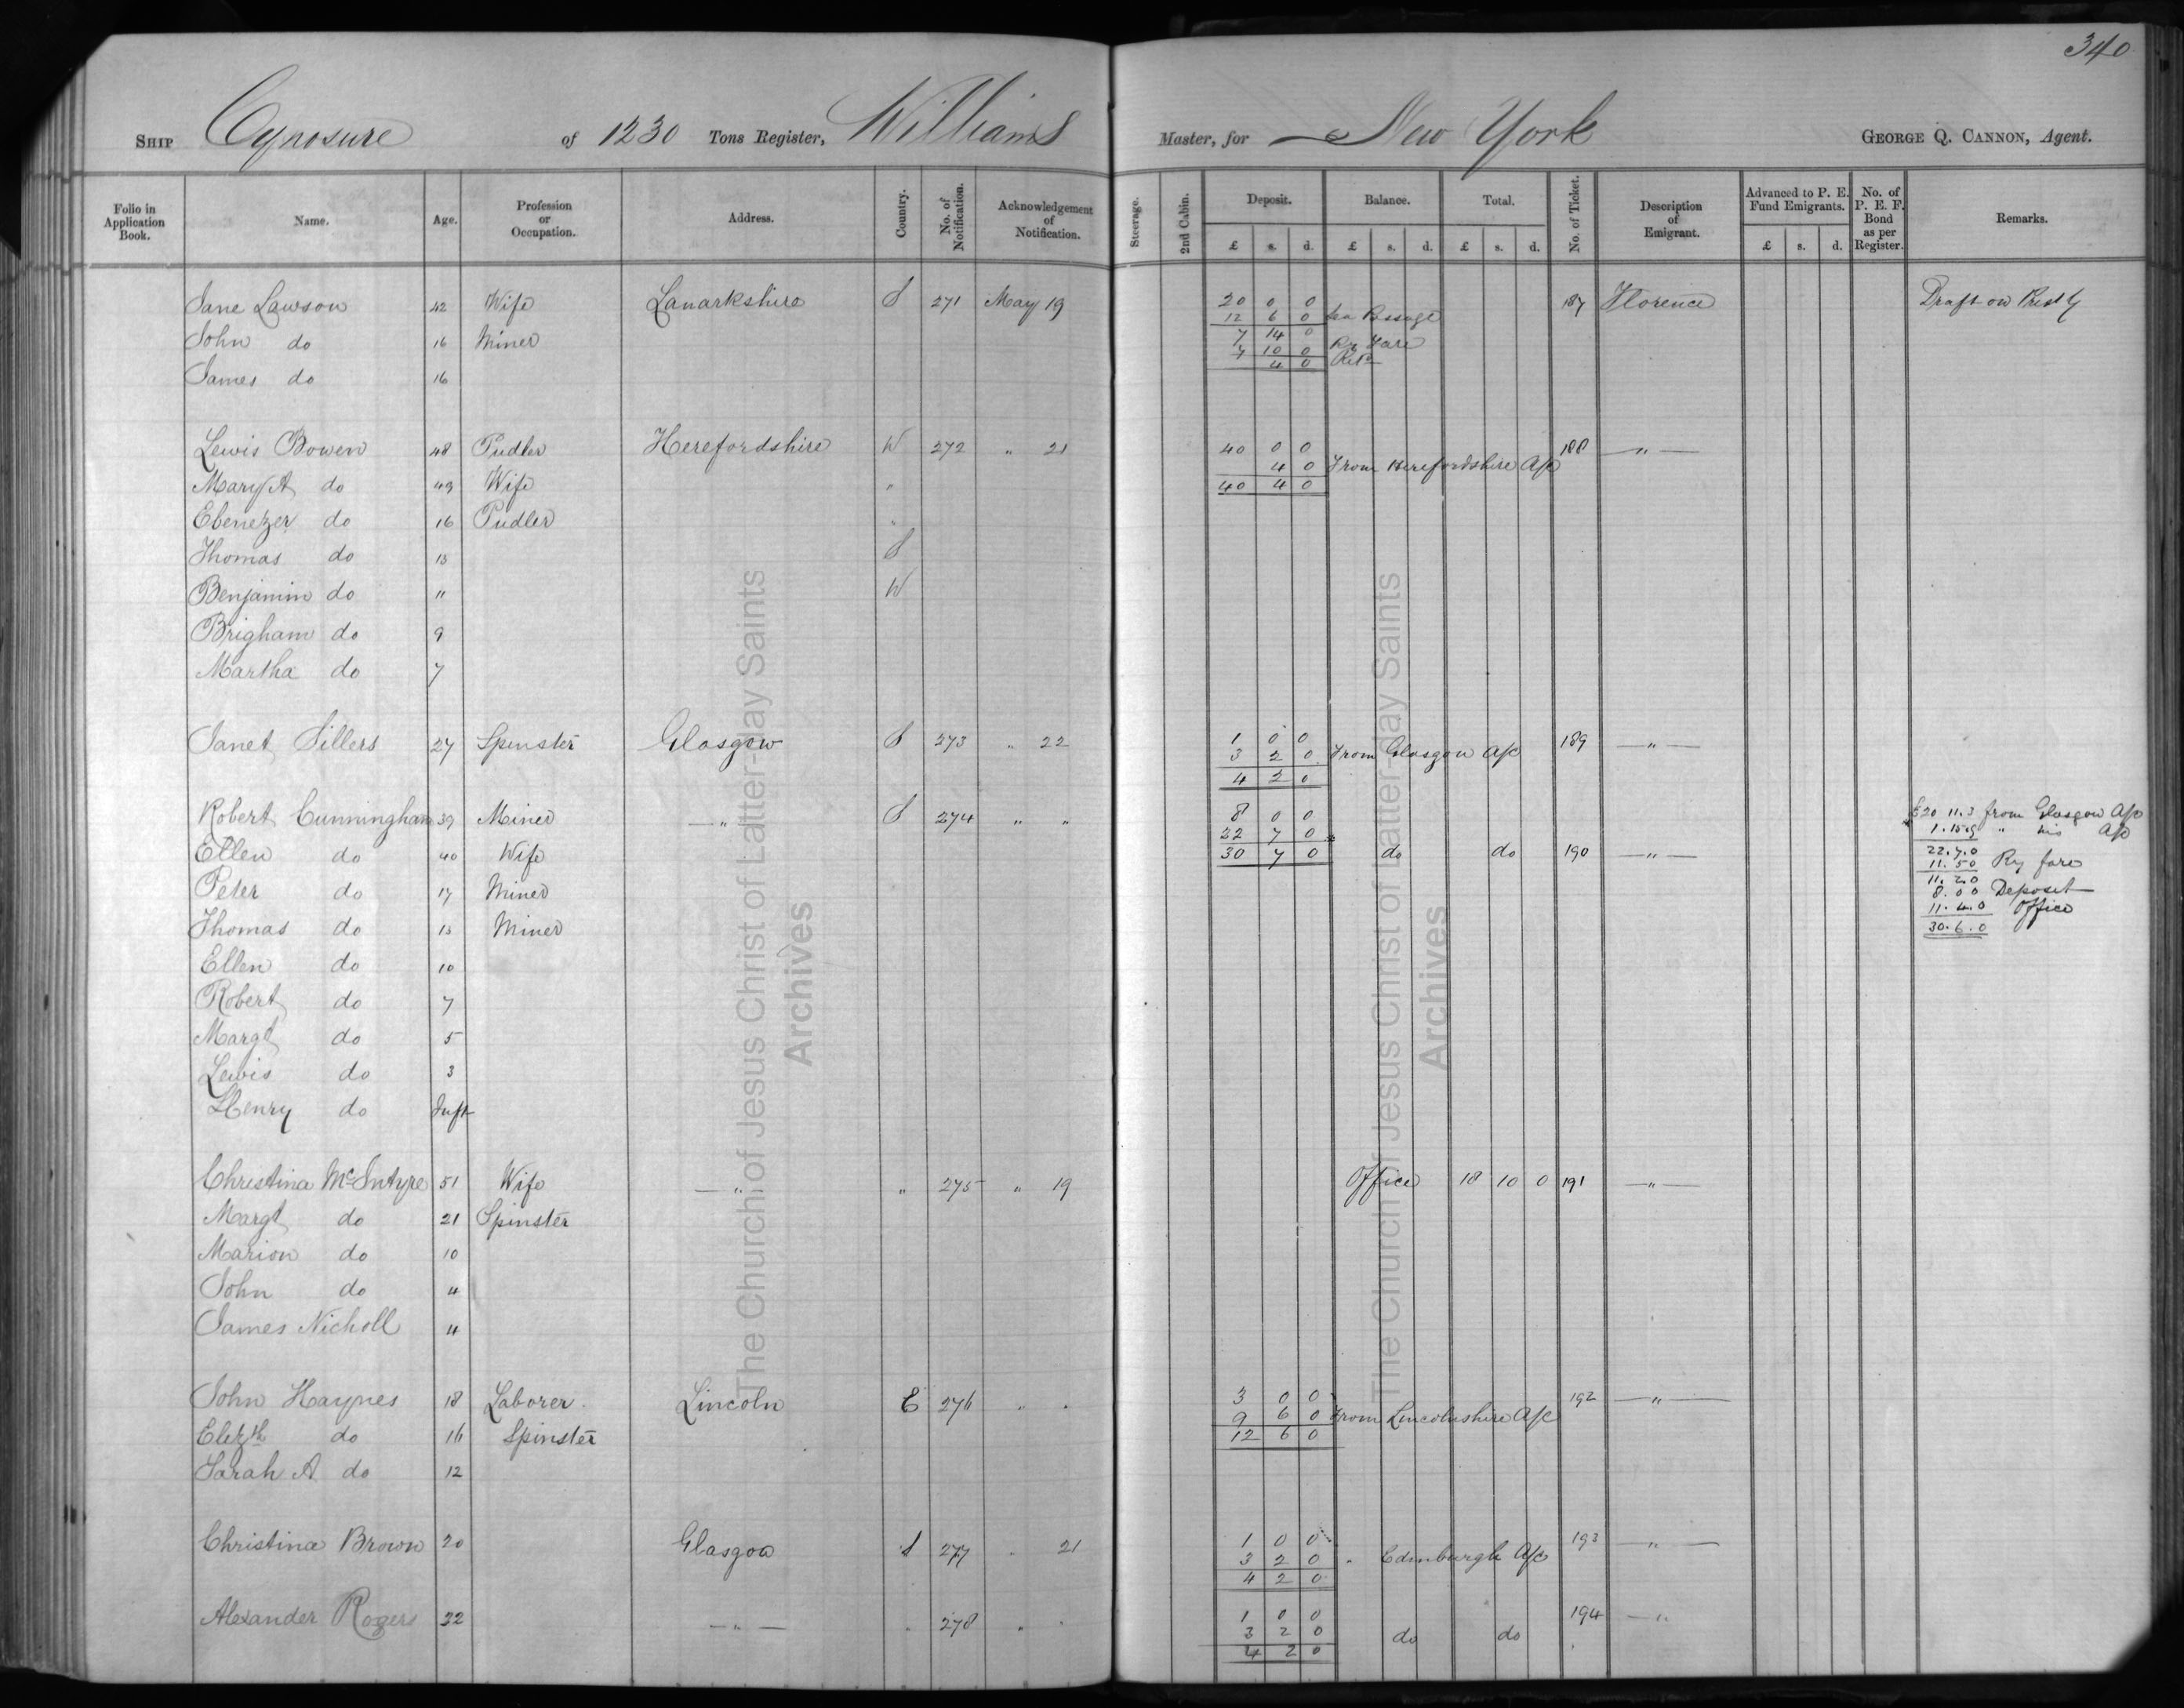 340
SHIP Cynosure of 1230 Tons Register, Williams Master, for New York GEORGE Q. CANNON, Agent.
Folio in Application Book. Name. Age. Profession or Occupation. Address. Country. No. of Notification. Acknowledgement of Notification. Steerage. 2nd Cabin. Deposit. Balance. Total. No. of Ticket. Description of Emigrant. Advanced to P. E. Fund Emigrants. No. of P. E. F. Bond as per Register. Remarks.
£ s. d. £ s. d. £ s. d. £ s. d.
Jane Lawson 42 Wife Lanarkshire S 271 May 19 20 0 0 187 Florence Draft on
12 6 0 Passage
John do 16 Miner 7 14 0 Ry Fare
7 10 0
James do 16 4 0
Lewis Bowen 48 Pudler Herefordshire W 272 " 21 40 0 0 188 — " —
4 0 From Herefordshire A/c
Mary A do 49 Wife " 40 4 0
Ebenezer do 16 Pudler "
Thomas do 13 S
Benjamin do 11 W
Brigham do 9
Martha do 7
Janet Sillers 27 Spinster Glasgow S 273 " 22 1 0 0 189 — " —
3 2 0 From Glasgow A/c
4 2 0
Robert Cunningham 39 Miner — " S 274 " " 8 0 0 £20 11.3 from Glasgow A/c
22 7 0 1.15.9 " his A/c
Ellen do 40 Wife 30 7 0 do do 190 — " — 22.7.0
11.5.0 Ry fare
Peter do 17 Miner 11.2.0
8.0.0 Deposit
Thomas do 13 Miner 11.4.0 Office
30.6.0
Ellen do 10
Robert do 7
Margt do 5
Lewis do 3
Henry do Inft
Christina McIntyre 51 Wife — " — " 275 " 19 Office 18 10 0 191 — " —
Margt do 21 Spinster
Marion do 10
John do 4
James Nicholl 4
John Haynes 18 Laborer. Lincoln E 276 " . 3 0 0 192 — " —
9 6 0 From Lincolnshire A/c
Elizth do 16 Spinster 12 6 0
Sarah A do 12
Christina Brown 20 Glasgow S 277 " 21 1 0 0 193 — " —
3 2 0 " Edinburgh A/c
4 2 0
Alexander Rogers 22 — " — . 278 " . 1 0 0 194 — "
3 2 0 do do
4 2 0
The Church of Jesus Christ of Latter-day Saints
Archives
The Church of Jesus Christ of Latter-day Saints
Archives